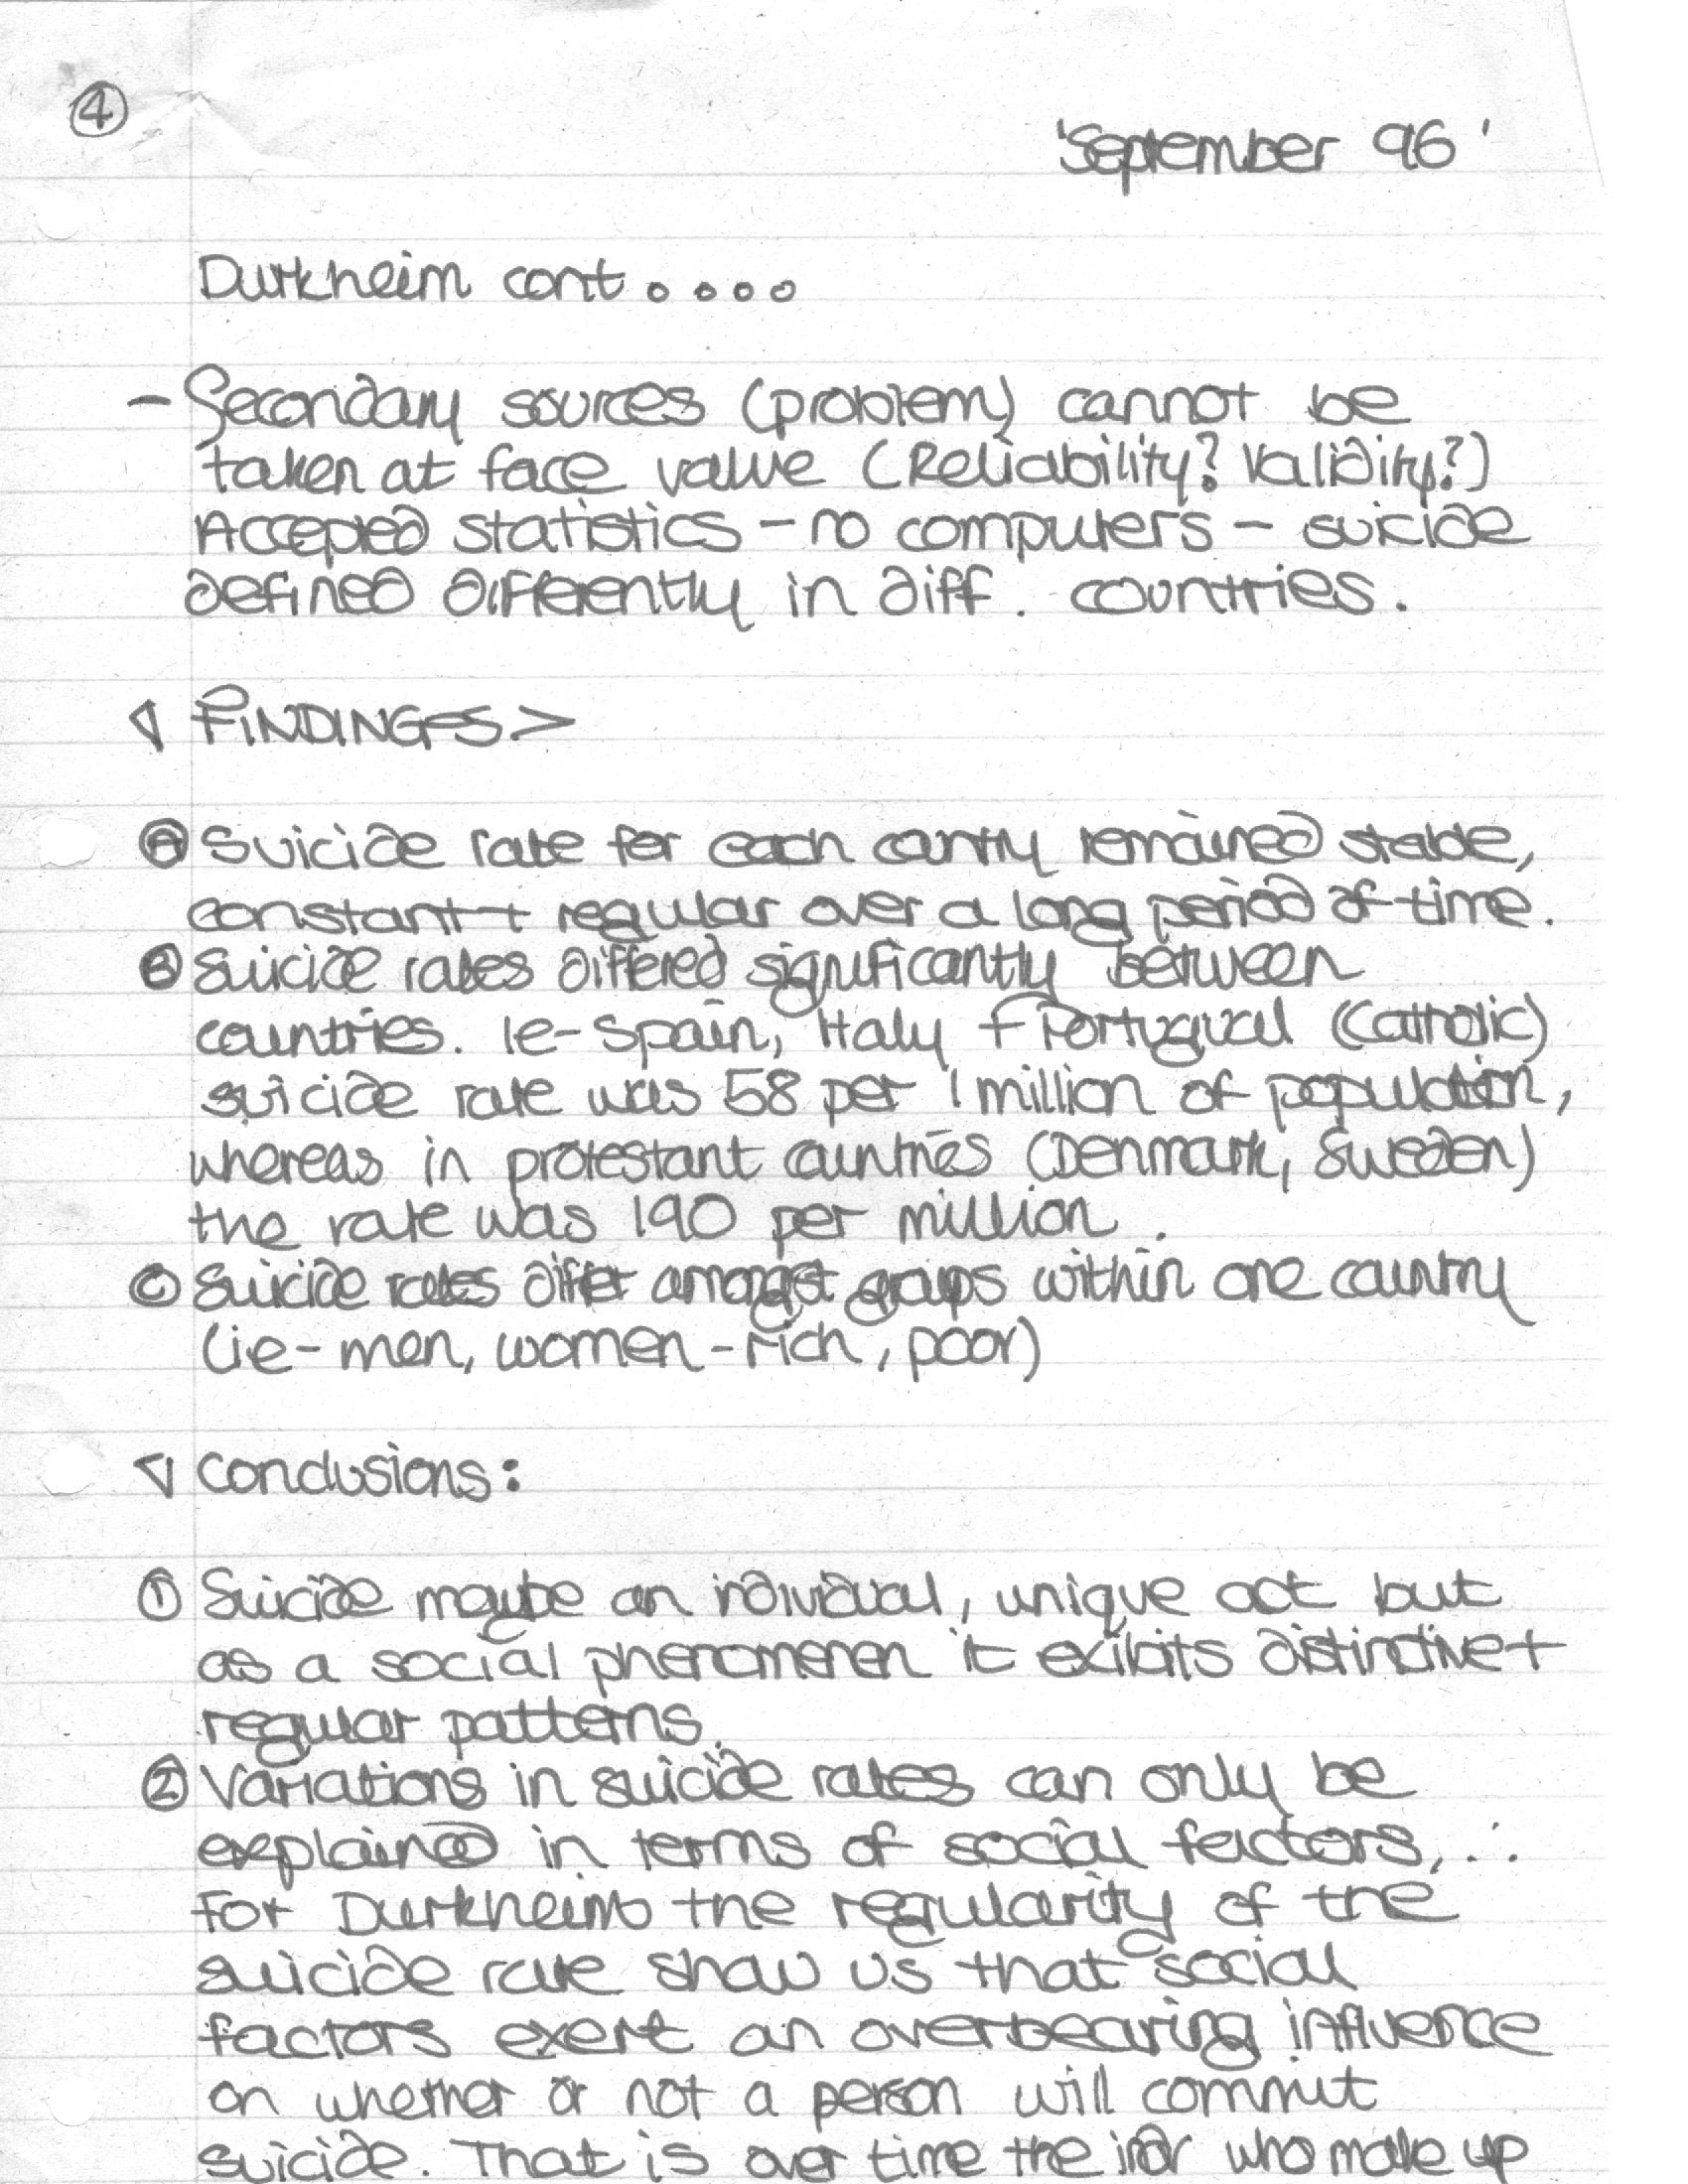 4
'September 96'
Durkheim cont....
- Secondary sources (problem) cannot be
taken at face value (Reliability? Validity?)
Accepted statistics - no computers - suicide
defined differently in diff. countries.
FINDINGS>
A Suicide rate for each country remained stable,
constant + regular over a long period of time.
B Suicide rates differed significantly between
countries. Ie - Spain, Italy + Portugual (Catholic)
suicide rate was 58 per 1 million of population,
whereas in protestant countries (Denmark, Sweden)
the rate was 190 per million.
C Suicide rates differ amongst groups within one country
(ie - men, women - rich, poor)
Conclusions:
1 Suicide maybe an individual, unique act but
as a social phenomenen it exibits distinctive +
regular patterns.
2 Variations in suicide rates can only be
explained in terms of social factors, ∴
For Durkheim the regularity of the
suicide rate show us that social
factors exert an overbearing influence
on whether or not a person will commit
suicide. That is over time the indv who make up